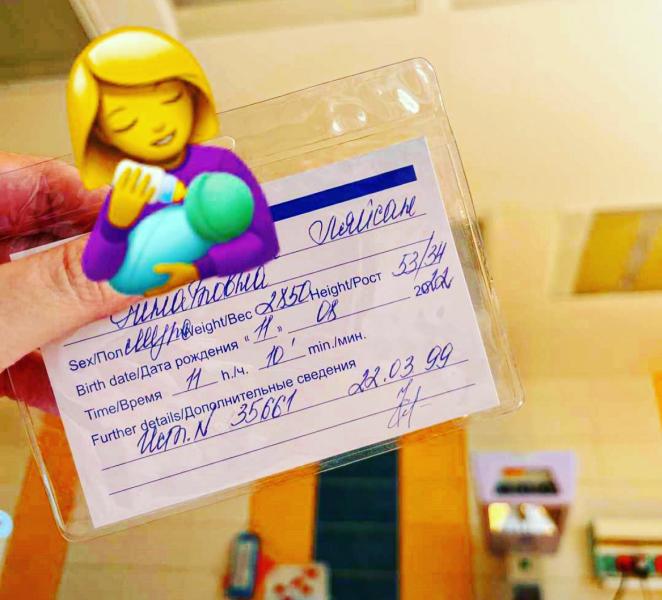 Ляйсан
Sex/Пол муж Weight/Вес 2850 Height/Рост 53/34
Birth date/Дата рождения "11" 08 2022
Time/Время 11 h./ч. 10' min./мин.
Further details/Дополнительные сведения
Ист. N 35661 22.03 99